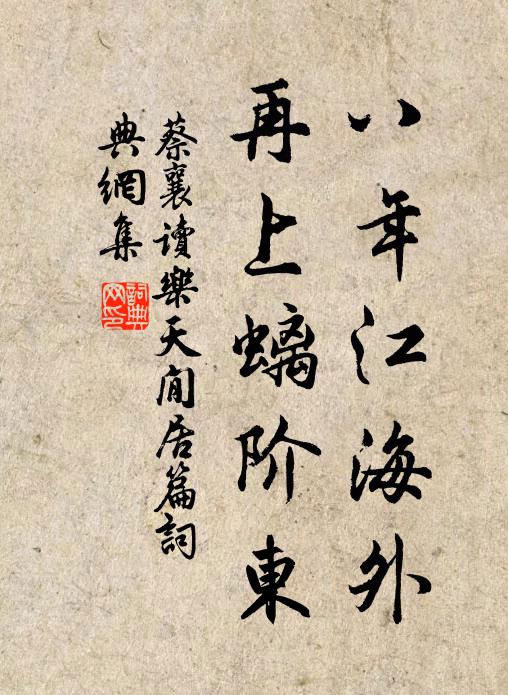 八年江海外
再上螭阶東
蔡襄讀樂天閒居篇詞
典網集
詞典網印